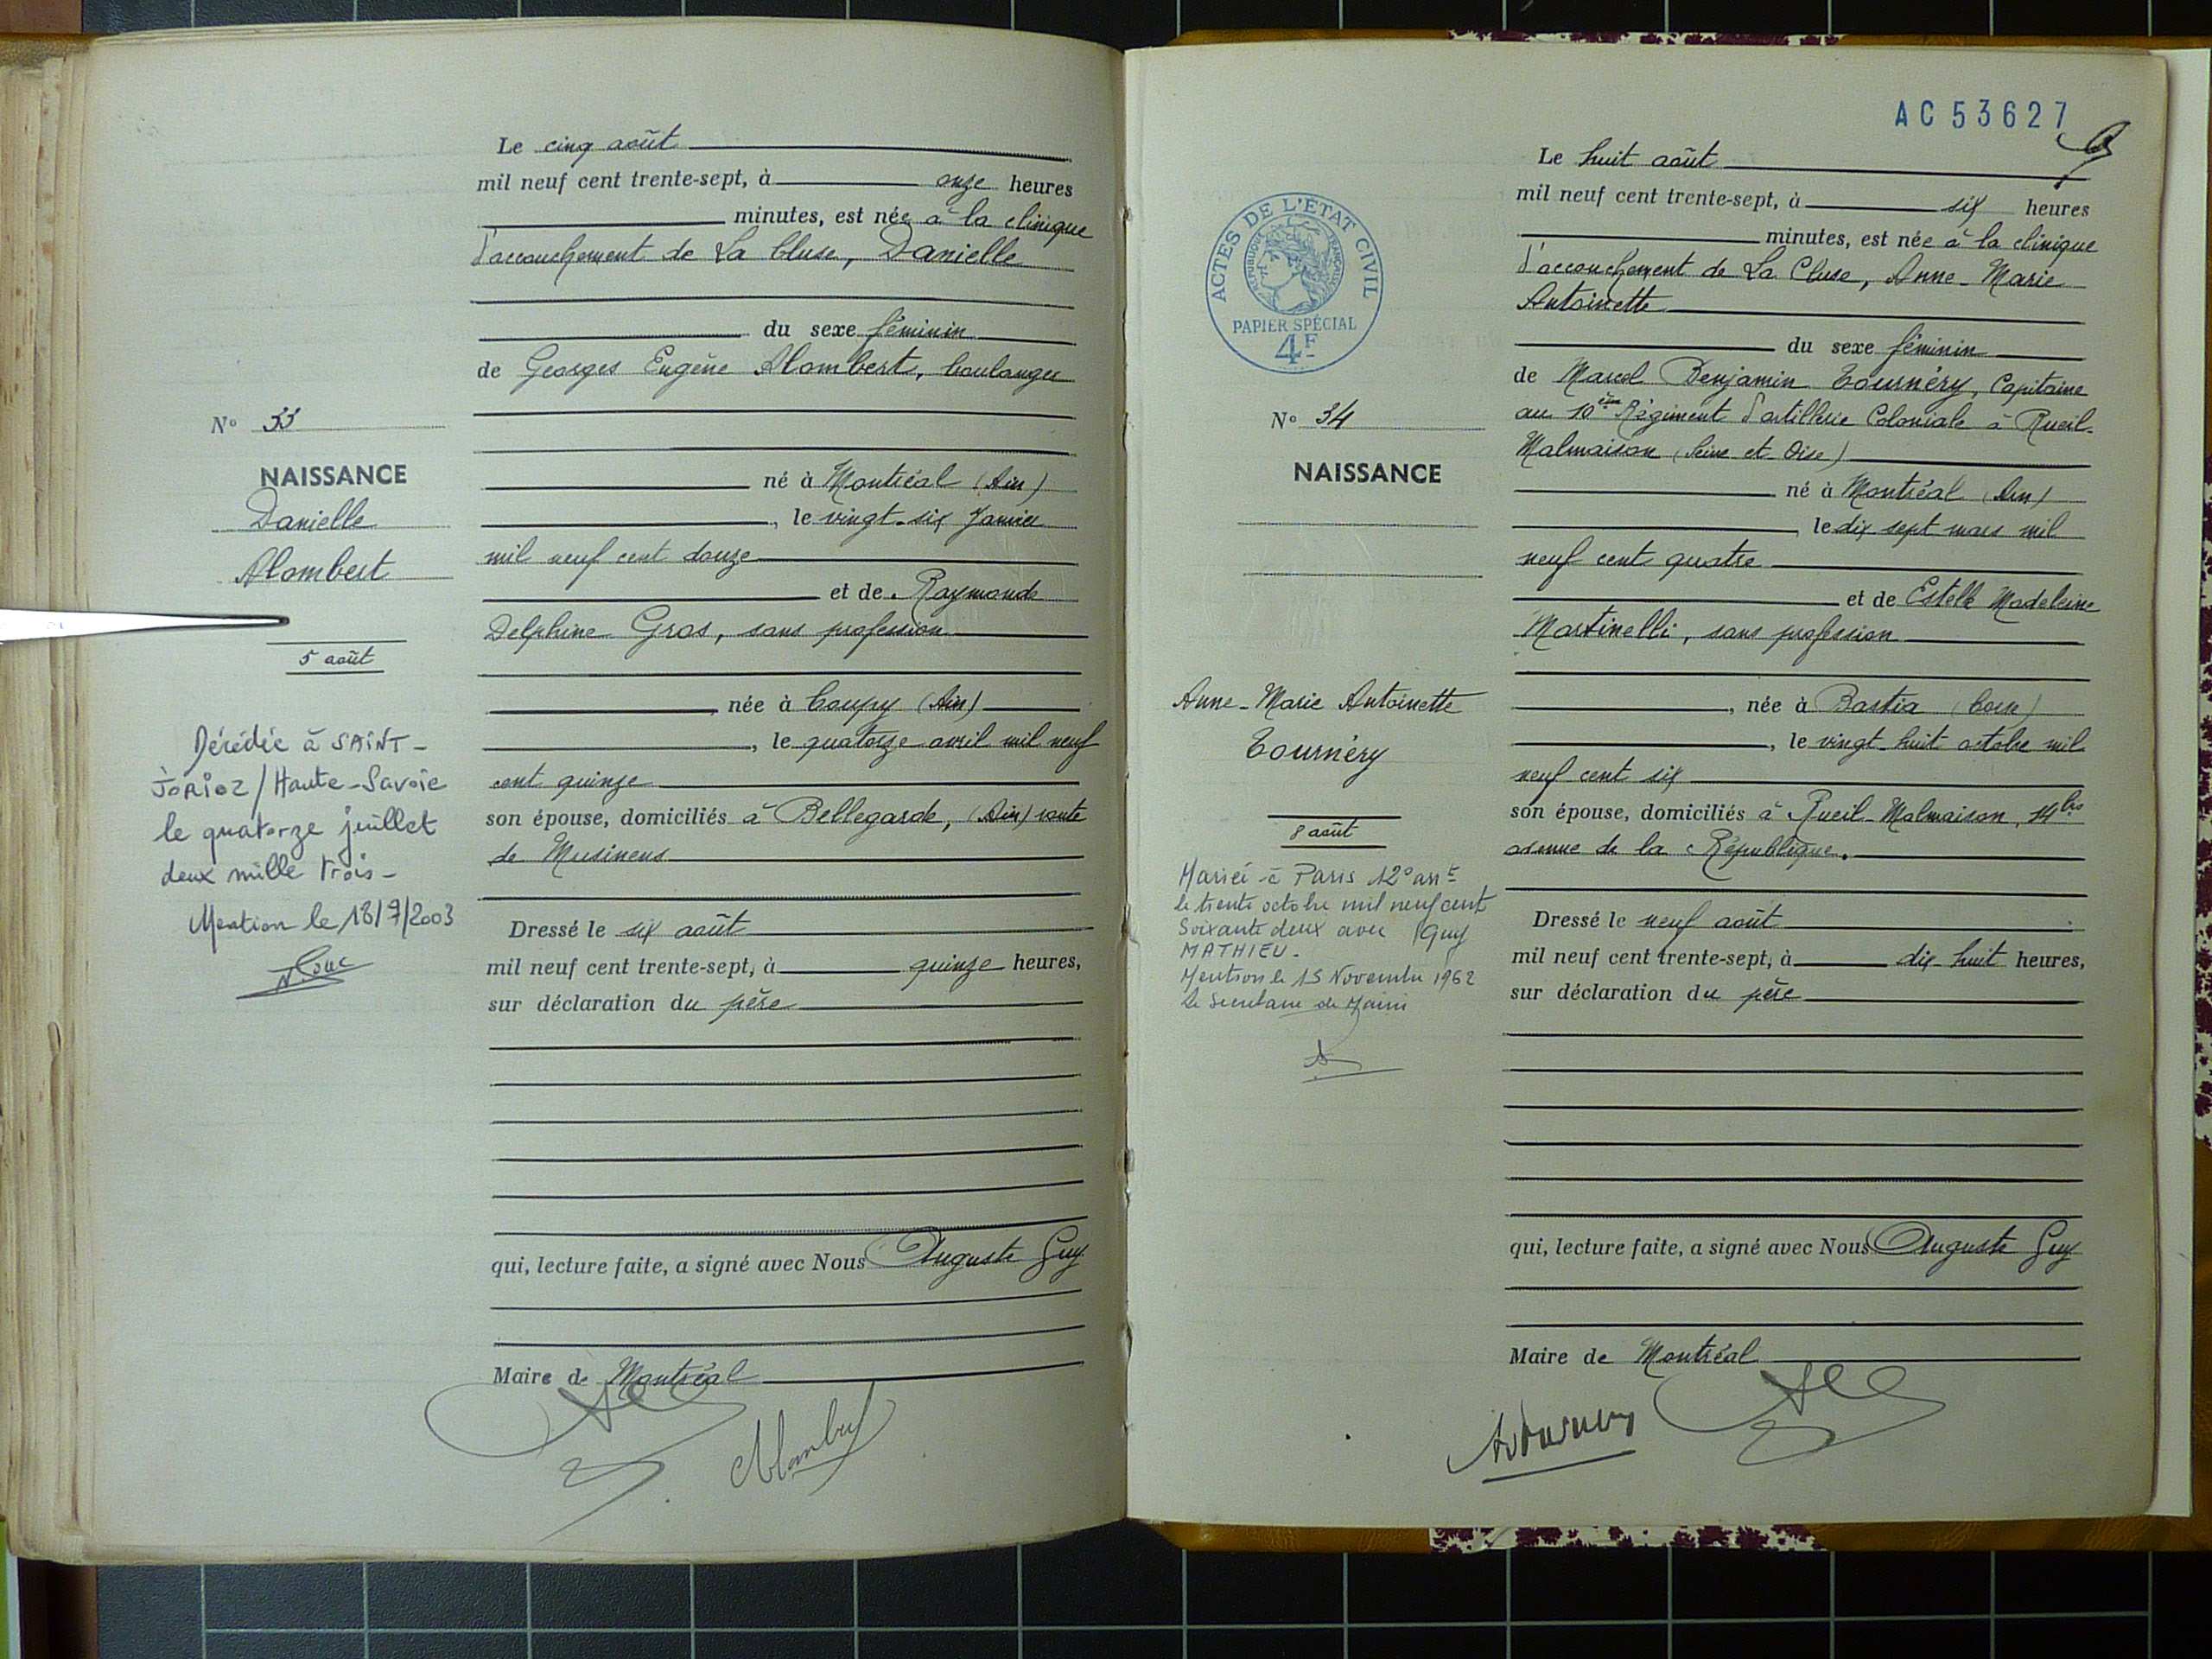 Le cinq août
mil neuf cent trente-sept, à onze heures
minutes, est née à la clinique
d'accouchement de La Cluse, Danielle
du sexe féminin
de Georges Eugène Alombert, boulanger
né à Montréal (Ain)
, le vingt-six Janvier
mil neuf cent douze
et de Raymonde
Delphine Gros, sans profession
née à Coupy (Ain)
, le quatorze avril mil neuf
cent quinze
son épouse, domiciliés à Bellegarde, (Ain) route
de Musinens
Dressé le six août
mil neuf cent trente-sept, à quinze heures,
sur déclaration du père
qui, lecture faite, a signé avec Nous Auguste Guy
Maire de Montréal
Alombert
N° 33
NAISSANCE
Danielle
Alombert
5 août
Décédée à SAINT-
JORIOZ / Haute-Savoie
le quatorze juillet
deux mille trois-
Mention le 18/7/2003
AC 53627
Le huit août
mil neuf cent trente-sept, à six heures
minutes, est née à la clinique
d'accouchement de La Cluse, Anne-Marie
Antoinette
du sexe féminin
de Marcel Benjamin Tournéry, Capitaine
au 10ème Régiment d'artillerie Coloniale à Rueil-
Malmaison (Seine et Oise)
né à Montréal (Ain)
, le dix sept mars mil
neuf cent quatre
et de Estelle Madeleine
Martinelli, sans profession
, née à Bastia (Corse)
, le vingt-huit octobre mil
neuf cent six
son épouse, domiciliés à Rueil-Malmaison, 14bis
avenue de la République.
Dressé le neuf août
mil neuf cent trente-sept, à dix-huit heures,
sur déclaration du père
qui, lecture faite, a signé avec Nous Auguste Guy
Maire de Montréal
ACTES DE L'ETAT CIVIL
REPUBLIQUE FRANÇAISE
PAPIER SPÉCIAL
4F
N° 34
NAISSANCE
Anne-Marie Antoinette
Tournéry
8 août
Mariée à Paris 12° arrt
le trente octobre mil neuf cent
Soixante deux avec Guy
MATHIEU-
Mention le 15 Novembre 1962
Le Secrétaire de Mairie